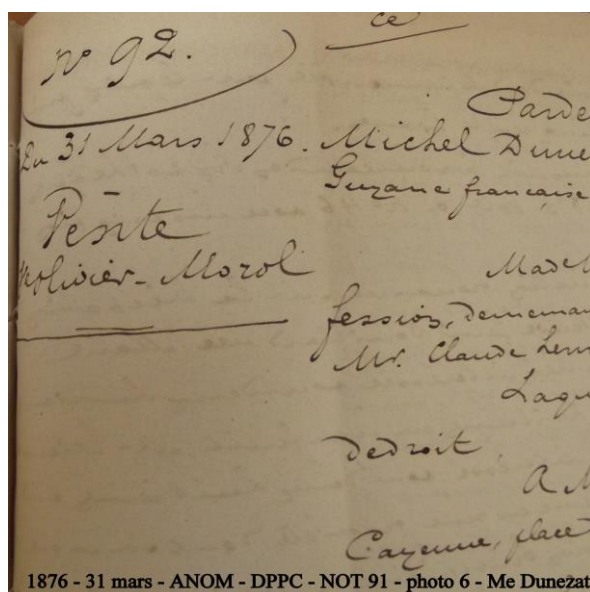 ce
n° 92.
Du 31 Mars 1876.
Vente
Molivier-Morol
Parde
Michel Dune
Guyane française
Made
fession, demeurant
Mr. Claude Lem
Laqu
de droit
A M
Cayenne, place
1876 - 31 mars - ANOM - DPPC - NOT 91 - photo 6 - Me Dunezat